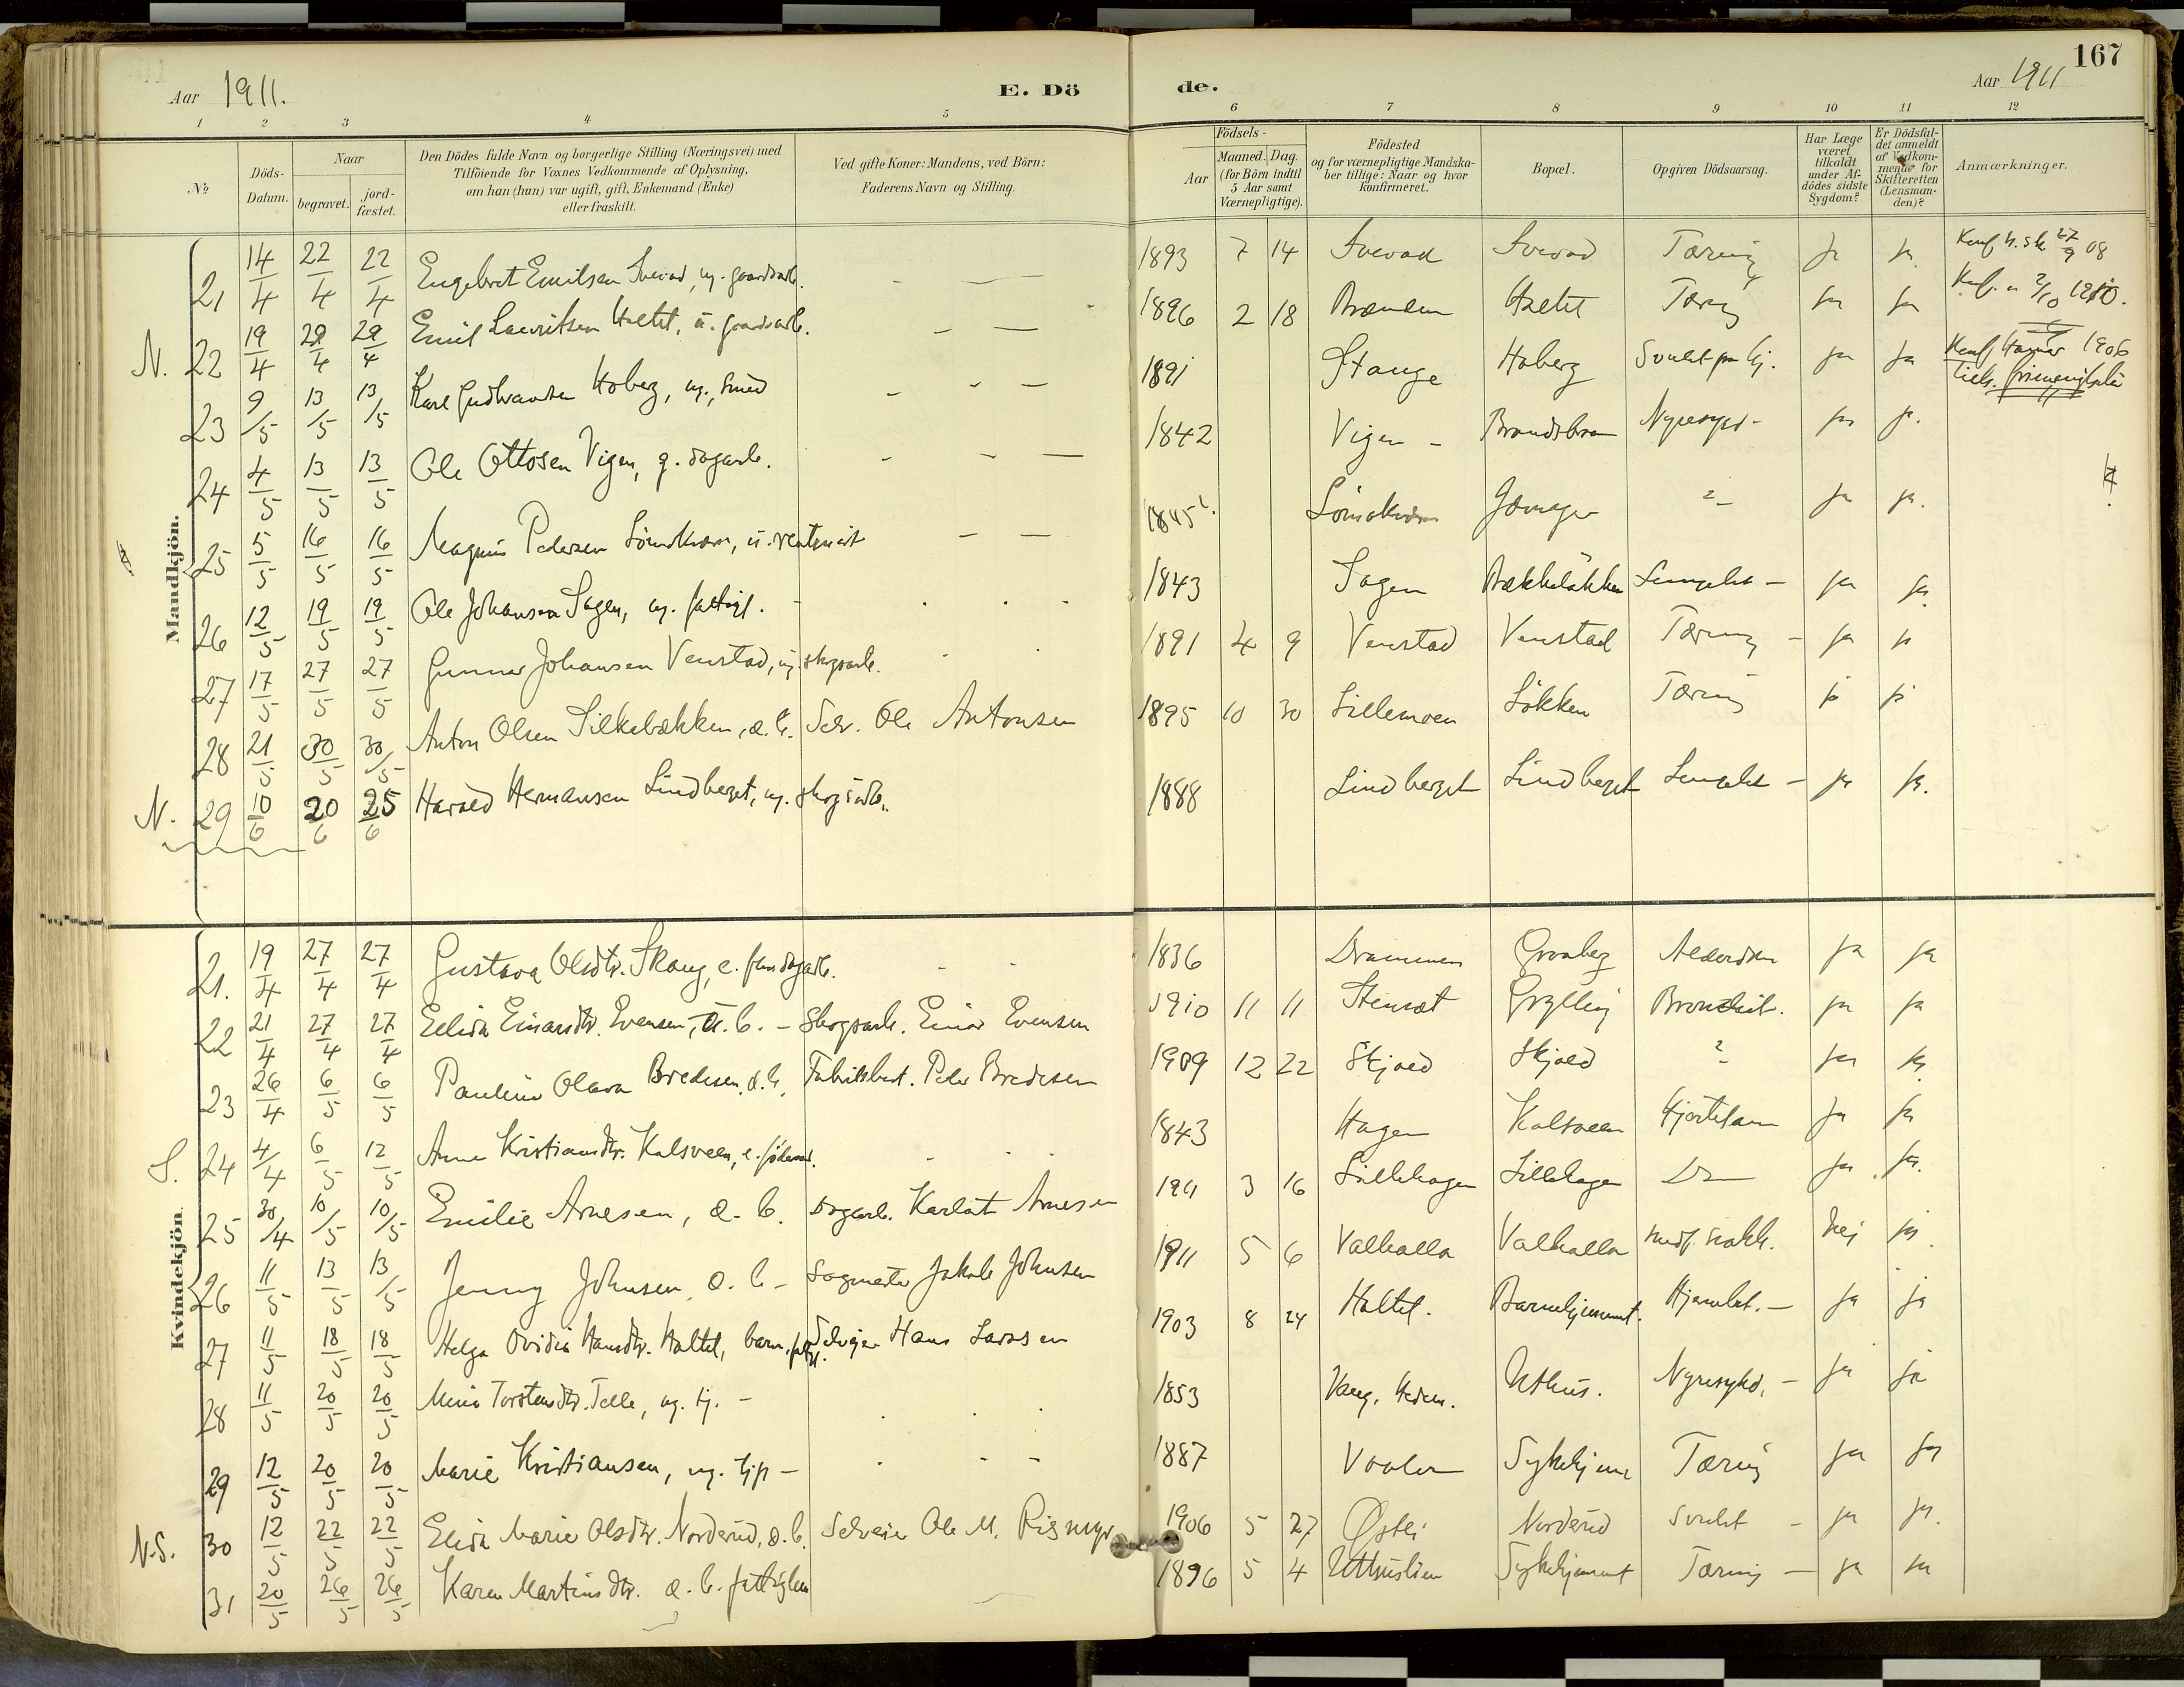 167
Aar 1911. E. Dö de. Aar 1911
1 2 3 4 5 6 7 8 9 10 11 12
No. Döds-Datum. Naar begravet. jord-fæstet. Den Dödes fulde Navn og borgerlige Stilling (Næringsvei) med Tilföiende for Voxnes Vedkommende af Oplysning, om han (hun) var ugift, gift, Enkemand (Enke) eller fraskilt. Ved gifte Koner: Mandens, ved Börn: Faderens Navn og Stilling. Födsels- Aar Maaned. Dag. (for Börn indtil 5 Aar samt Værnepligtige). Födested og for værnepligtige Mandskaber tillige: Naar og hvor konfirmeret. Bopæl. Opgiven Dödsaarsag. Har Læge været tilkaldt under Afdödes sidste Sygdom? Er Dödsfaldet anmeldt af Vedkommende for Skifteretten (Lensmanden)? Anmærkninger.
Mandkjön.
21 14/4 22/4 22/4 Engebret Emilsen Svevad, ug. gaardsarb. 1893 7 14 Svevad Svevad Tæring ja ja 27/9 08
N. 22 19/4 29/4 29/4 Emil Lauritsen Holtet, u. gaardsarb. 1896 2 18 Holtet Tæring ja ja 2/10 1910.
23 9/5 13/5 13/5 Karl Gudbrandsen Hoberg, ug., smed 1891 Stange Hoberg ja ja Konf. Hamar 1906
24 4/5 13/5 13/5 Ole Ottosen Vigen, g. dagarb. 1842 Vigen - Nyresygd - ja ja.
25 5/5 16/5 16/5 Magnus Pedersen 1845 ja ja.
26 12/5 19/5 19/5 Ole Johansen Sagen, ug. fattigl. 1843 Sagen Bækkeløkken Lungebet - ja ja
27 17/5 27/5 27/5 Gunnar Johansen Venstad, ug skogsarb. 1891 4 9 Venstad Venstad Tæring - ja ja
28 21/5 30/5 30/5 Anton Olsen Silkebækken, æ. b. Selv. Ole Antonsen 1895 10 30 Lillemoen Løkken Tæring ja ja
N. 29 10/6 20/6 25/6 Harald Hermansen Lindberget, ug. skogsarb. 1888 Lindberget Lindberget Lungebet - ja ja.
Kvindekjön.
21. 19/4 27/4 27/4 Gustava Olsdtr. Skaug, e. 1836 Drammen Grønberg Alderdom ja ja
22 21/4 27/4 27/4 Einarsdtr. Evensen, æ. b. - Skogsarb. Einar Evensen 1910 11 11 Grylling Bronchit. ja ja
23 26/4 6/5 6/5 Pauline Olava Bredesen, æ. b. Fabrikbest. Peder Bredesen 1909 12 22 Skjold Skjold ? ja ja
S. 24 4/4 6/5 12/5 Anna Kristiansdtr. Kalsveen, e. 1843 Hagen Kalsveen Hjertelam ja ja
25 30/4 10/5 10/5 Emilie Arnesen, æ. b. Dagarb. Karlot Arnesen 1911 3 16 Lillehagen Lillehagen Do ja ja.
26 11/5 13/5 13/5 Jenny Johnsen, æ. b - Sagmester Jakob Johnsen 1911 5 6 Valhalla Valhalla medf. svakh. nei ja
27 11/5 18/5 18/5 Helga Ovidia Hansdtr. Holtet, barn, Selveier Hans Larssen 1903 8 24 Holtet. Barnehjemmet. Hjernebet. - ja ja
28 11/5 20/5 20/5 Mina Torstensdtr. Telle, ug. tj. - 1853 Vang, Hedm. Uthus. Nyresykd. - ja ja
29 12/5 20/5 20/5 Marie Kristiansen, ug. tjp - 1887 Vaaler Sykehjem Tæring ja ja
N.S. 30 12/5 22/5 22/5 Elida Marie Olsdtr. Norderud, æ. b. Selveier Ole M. Rismyr 1906 5 27 Østli Norderud - ja ja.
31 20/5 26/5 26/5 Karen Martinsdtr. æ. b. fattiglem 1896 5 4 Uthuslien Sykehjemmet Tæring - ja ja